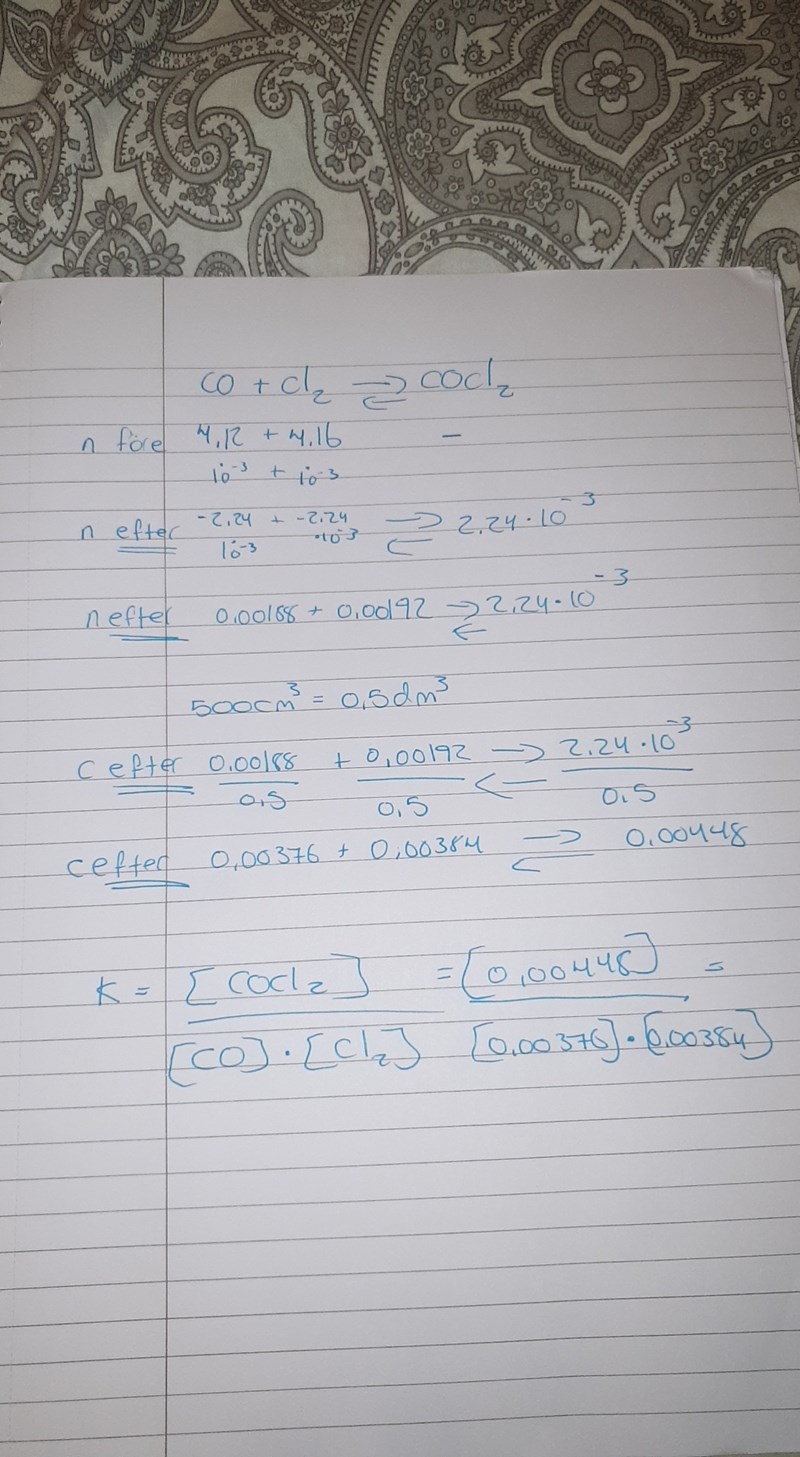 CO + Cl₂ ⇌ COCl₂
n före 4,12 + 4,16 –
·10⁻³ + ·10⁻³
n efter -2,24 + -2,24 ⇌ 2,24·10⁻³
·10⁻³ ·10⁻³
n efter 0,00188 + 0,00192 ⇌ 2,24·10⁻³
500cm³ = 0,5dm³
C efter 0.00188 + 0,00192 ⇌ 2.24·10⁻³
0,5 0,5 0,5
C efter 0,00376 + 0,00384 ⇌ 0.00448
K = [COCl₂] = [0,00448] =
[CO]·[Cl₂] [0,00376]·[0,00384]